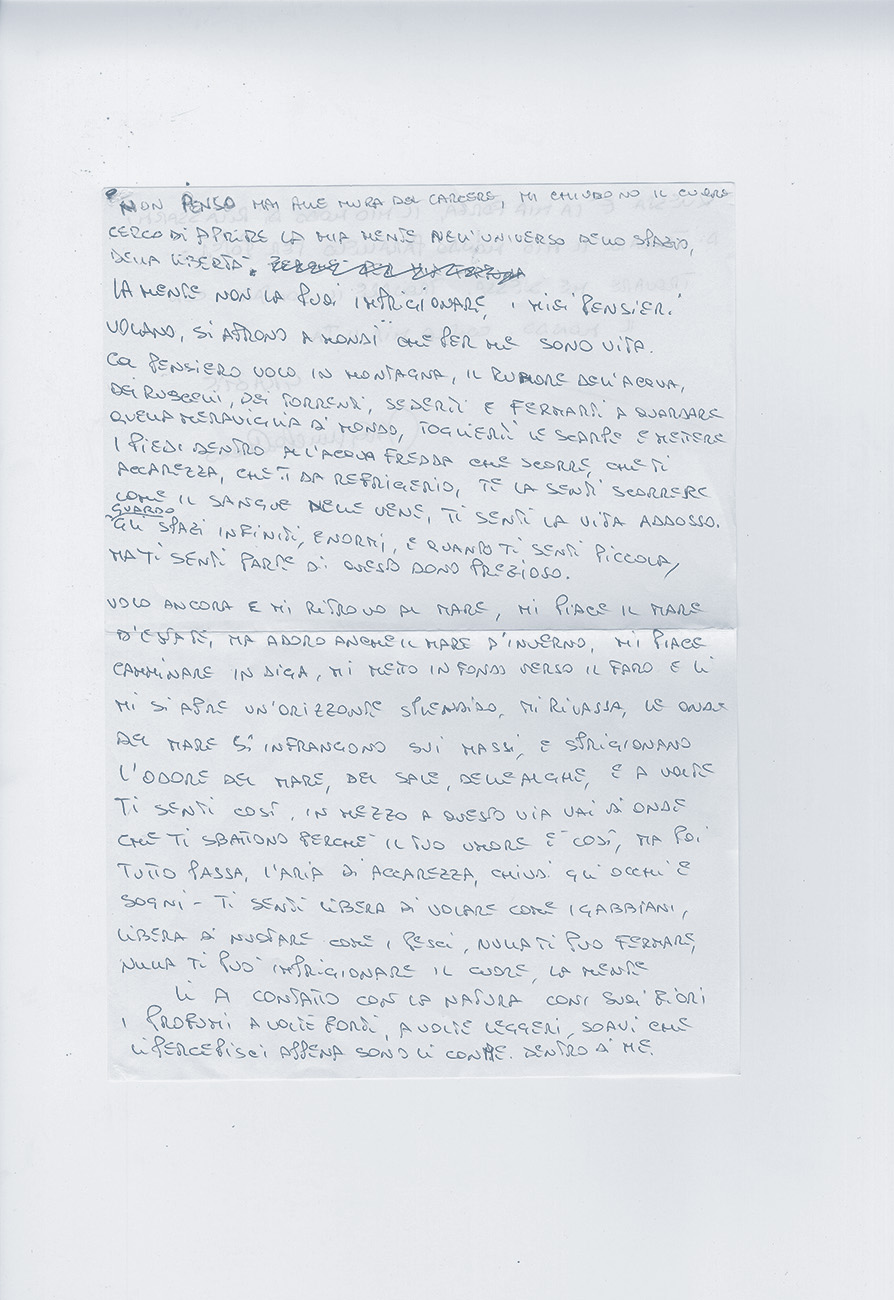 NON PENSO MAI ALLE MURA DEL CARCERE, MI CHIUDONO IL CUORE
CERCO DI APRIRE LA MIA MENTE NELL'UNIVERSO DELLO SPAZIO,
DELLA LIBERTÀ.
LA MENTE NON LA PUOI IMPRIGIONARE, I MIEI PENSIERI
VOLANO, SI APRONO A MONDI CHE PER ME SONO VITA.
COL PENSIERO VOLO IN MONTAGNA, IL RUMORE DELL'ACQUA,
DEI RUSCELLI, DEI TORRENTI, SEDERTI E FERMARTI A GUARDARE
QUELLA MERAVIGLIA DI MONDO, TOGLIERTI LE SCARPE E METTERE
I PIEDI DENTRO ALL'ACQUA FREDDA CHE SCORRE, CHE TI
ACCAREZZA, CHE TI DA REFRIGERIO, TE LA SENTI SCORRERE
COME IL SANGUE NELLE VENE, TI SENTI LA VITA ADDOSSO.
GUARDO
GLI SPAZI INFINITI, ENORMI, E QUANTO TI SENTI PICCOLA,
MA TI SENTI PARTE DI QUESTO DONO PREZIOSO.
VOLO ANCORA E MI RITROVO AL MARE, MI PIACE IL MARE
D'ESTATE, MA ADORO ANCHE IL MARE D'INVERNO, MI PIACE
CAMMINARE IN DIGA, MI METTO IN FONDO VERSO IL FARO E LÌ
MI SI APRE UN'ORIZZONTE SPLENDIDO, MI RILASSA, LE ONDE
DEL MARE SI INFRANGONO SUI MASSI, E SPRIGIONANO
L'ODORE DEL MARE, DEL SALE, DELLE ALGHE, E A VOLTE
TI SENTI COSÌ, IN MEZZO A QUESTO VIA VAI DI ONDE
CHE TI SBATTONO PERCHÈ IL TUO UMORE È COSÌ, MA POI
TUTTO PASSA, L'ARIA DI ACCAREZZA, CHIUDI GLI OCCHI E
SOGNI - TI SENTI LIBERA DI VOLARE COME I GABBIANI,
LIBERA DI NUOTARE COME I PESCI, NULLA TI PUÒ FERMARE,
NULLA TI PUÒ IMPRIGIONARE IL CUORE, LA MENTE
LÌ A CONTATTO CON LA NATURA CON I SUOI FIORI
I PROFUMI A VOLTE FORTI, A VOLTE LEGGERI, SOAVI CHE
LI PERCEPISCI APPENA SONO LÌ CON ME. DENTRO DI ME.